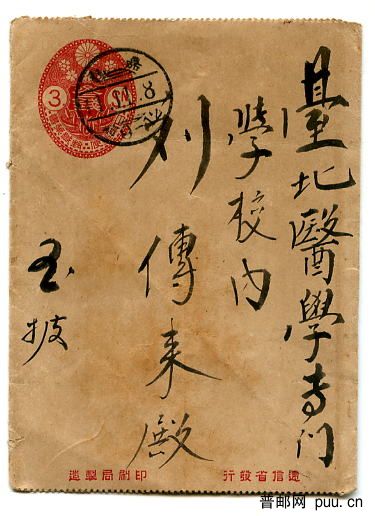 臺北醫學専门
學校内
列傳来殿
玉披
3
遞信省發行
印刷局製造
普邮网 puu.cn